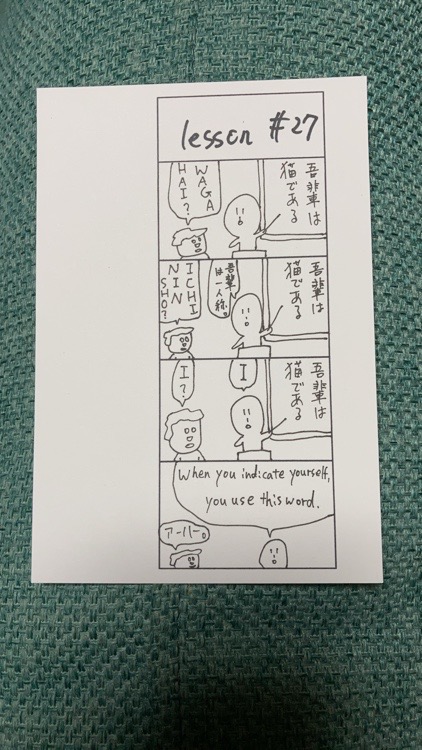 lesson #27
吾輩は
猫である
WAGA
HAI?
吾輩は
猫である
吾輩
は一人称。
ICHI
NIN
SHO?
吾輩は
猫である
I
I?
When you indicate yourself,
you use this word.
アーハー。